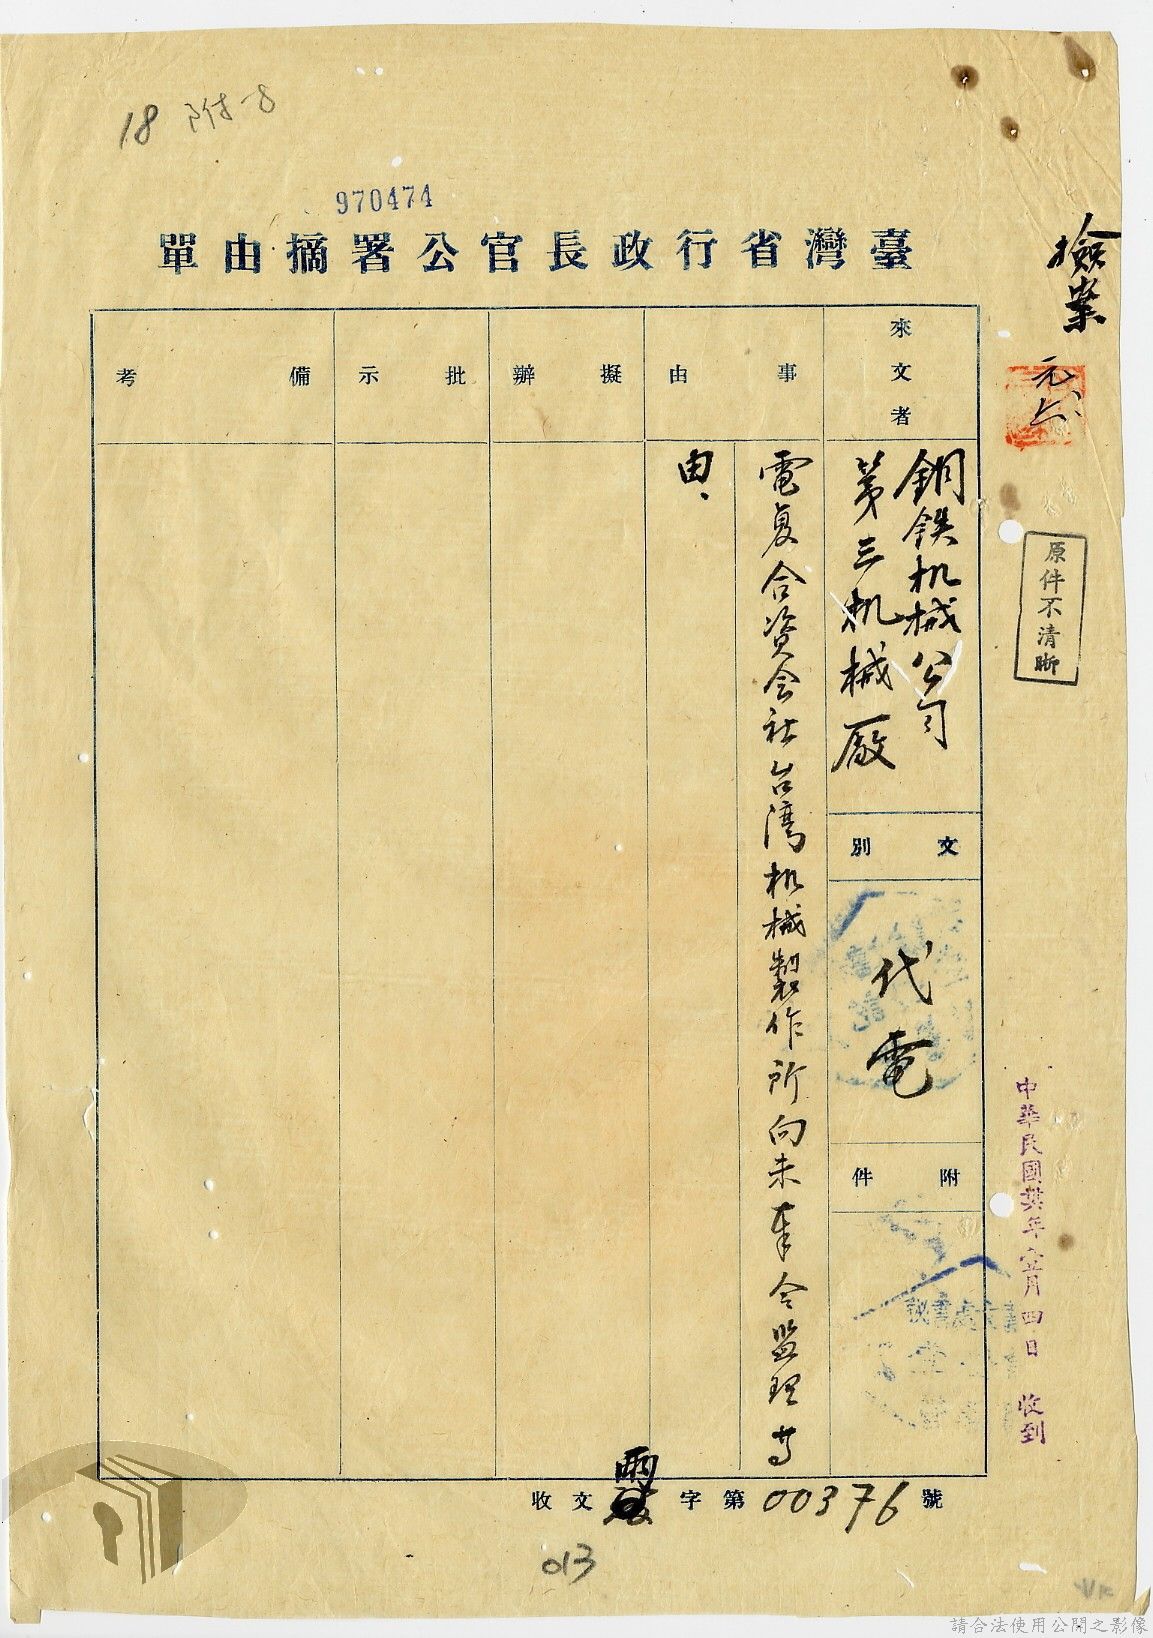 18 附-8
970474
臺灣省行政長官公署摘由單
檢案
元六
原件不清晰
來文者
鋼鉄机械公司
第三机械廠
文別
代電
附件
事由
電复合資会社台湾机械製作所向未奉令监理等
由、
擬辦
批示
備考
中華民國年月四日 收到
收文 字第00376號
013
請合法使用公開之影像